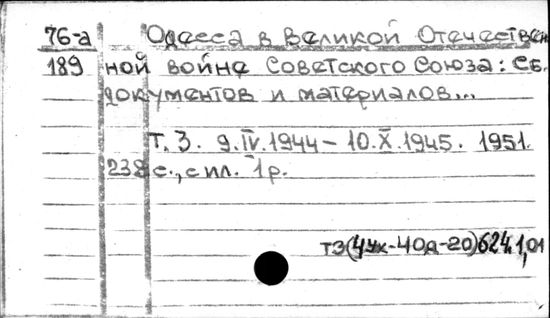 76-а Одесса в Великой Отечествен
189 ной войне Советского Союза: Сб.
документов и материалов...
Т. 3. 9.IV.1944 – 10.X.1945. 1951.
238 с., с ил. 1 р.
ТЗ(4Ук-4Од-20)624,1,01